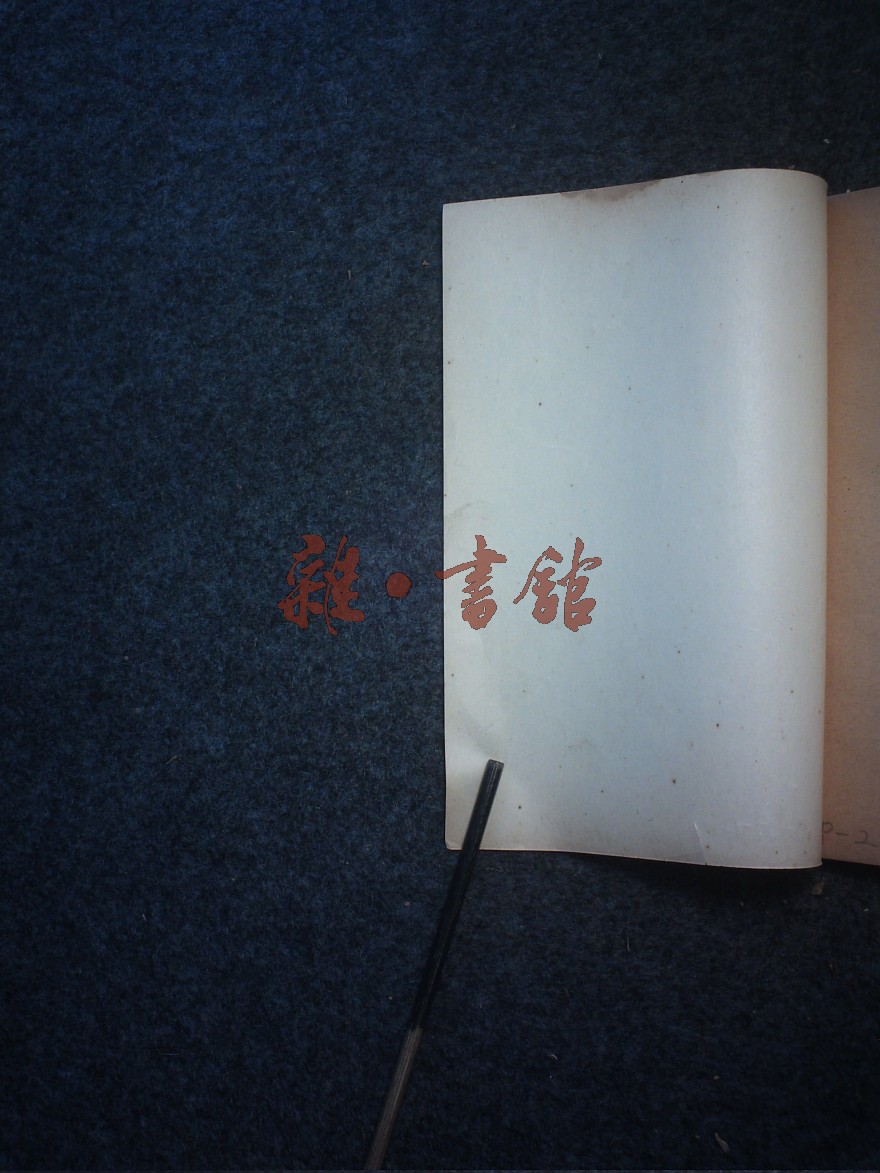 雜·書館
P-2